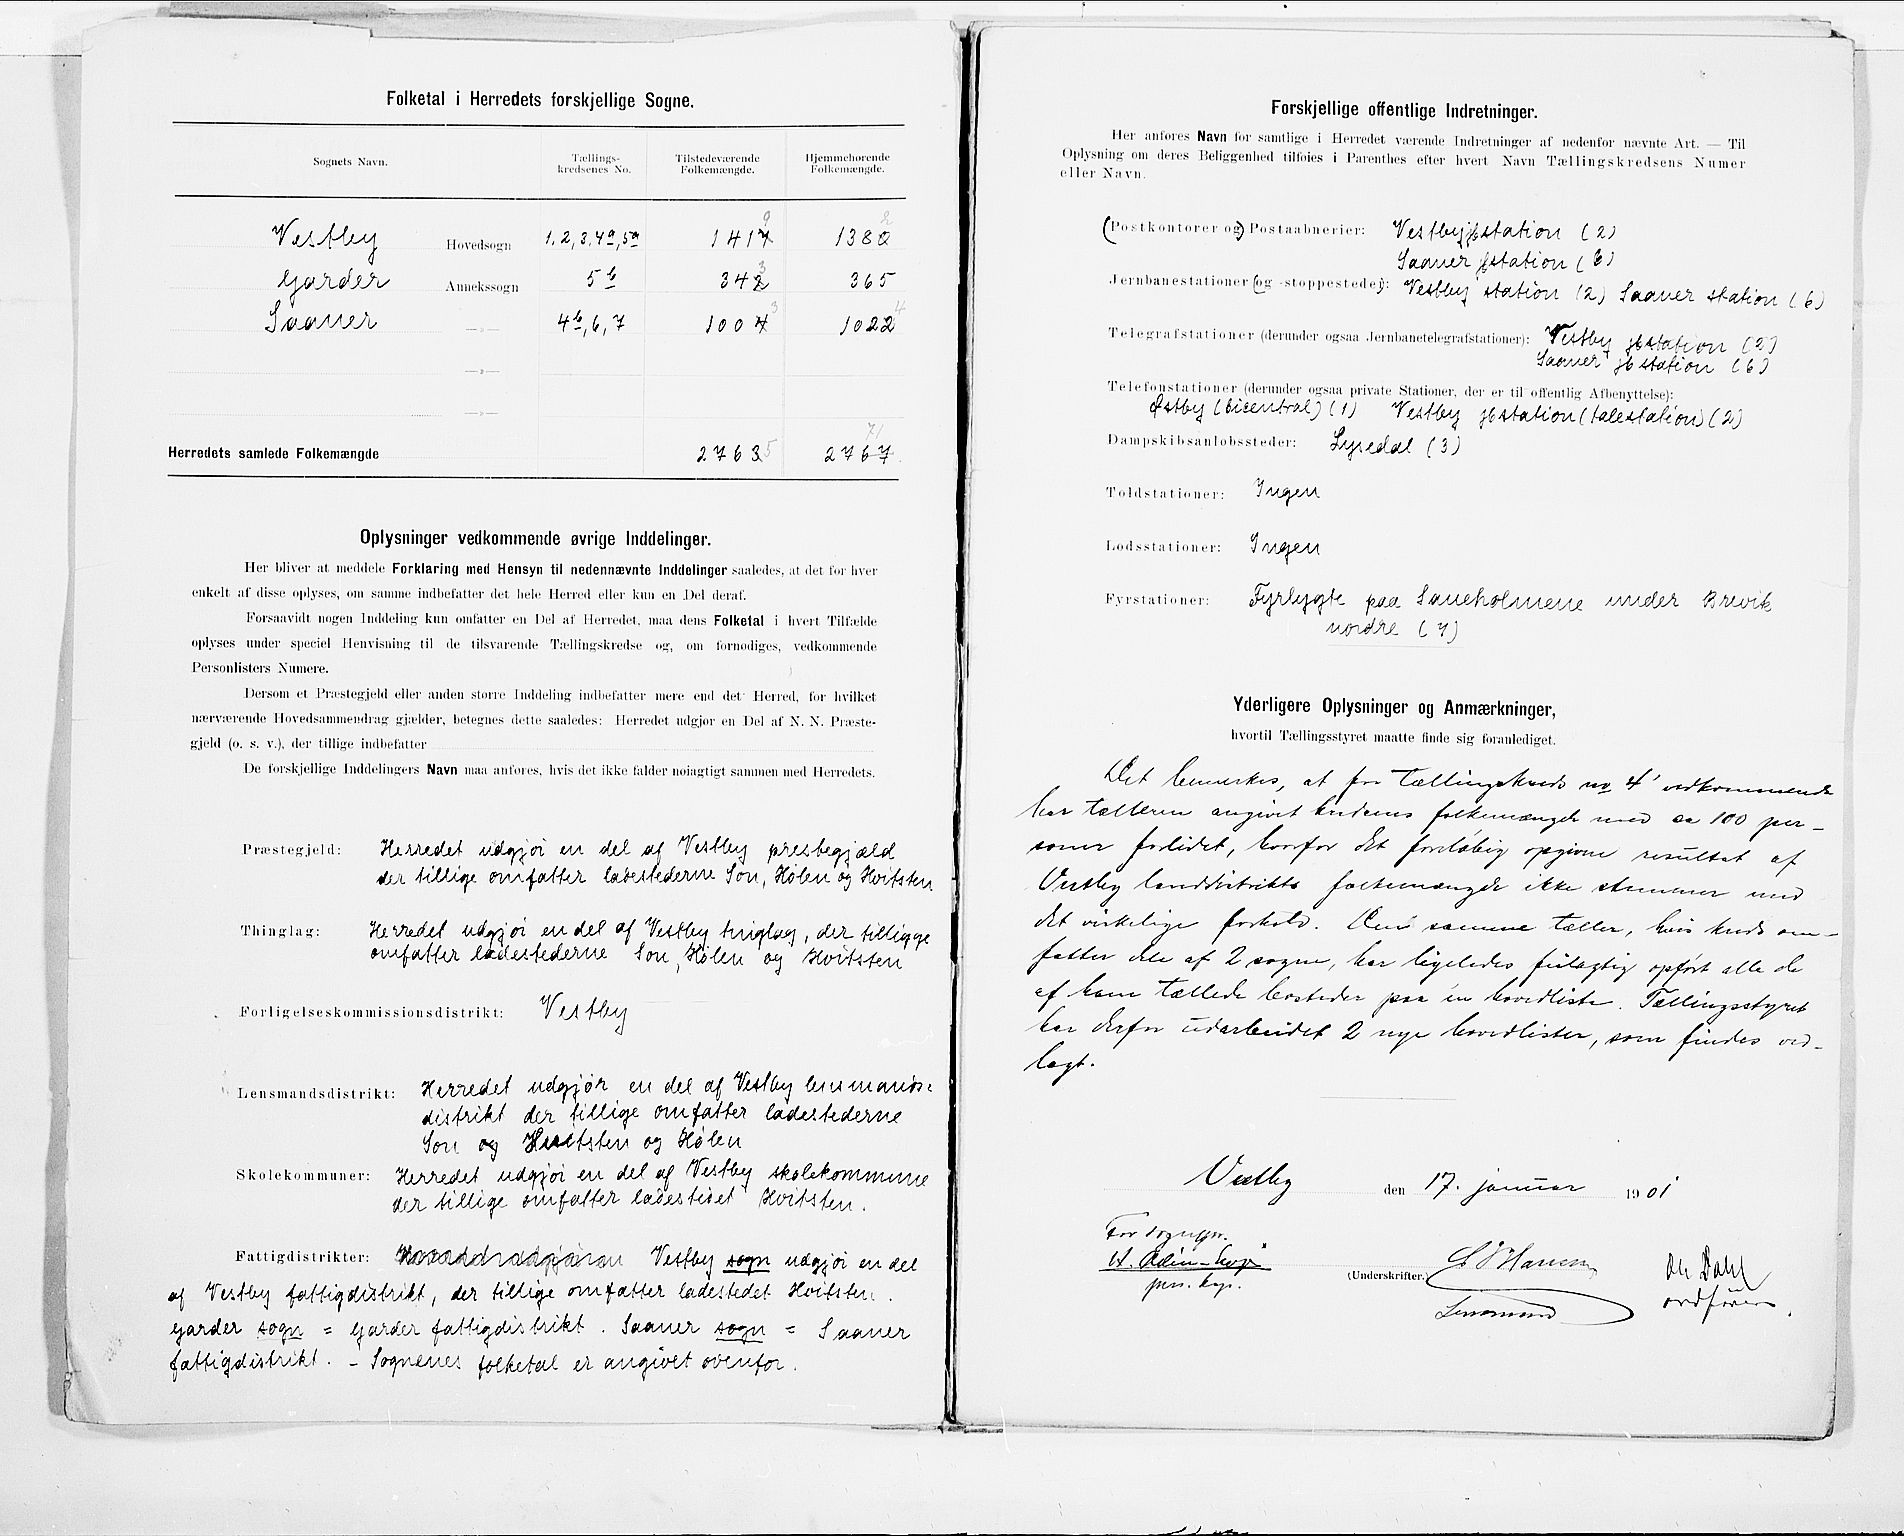 Folketal i Herredets forskjellige Sogne.
Sognets Navn. Tællings-kredsenes No. Tilstedeværende Folkemængde. Hjemmehørende Folkemængde.
Vestby Hovedsogn 1, 2, 3, 4a, 5a 1417 9 1380 2
Garder Annekssogn 5b 342 3 365
Saaner —„— 4b, 6, 7 1004 3 1022 4
—„—
—„—
Herredets samlede Folkemængde 2763 5 2767 71
Oplysninger vedkommende øvrige Inddelinger.
Her bliver at meddele Forklaring med Hensyn til nedennævnte Inddelinger saaledes, at det for hver
enkelt af disse oplyses, om samme indbefatter det hele Herred eller kun en Del deraf.
Forsaavidt nogen Inddeling kun omfatter en Del af Herredet, maa dens Folketal i hvert Tilfælde
oplyses under speciel Henvisning til de tilsvarende Tællingskredse og, om fornødiges, vedkommende
Personlisters Numere.
Dersom et Præstegjeld eller anden større Inddeling indbefatter mere end det Herred, for hvilket
nærværende Hovedsammendrag gjælder, betegnes dette saaledes: Herredet udgjør en Del af N. N. Præste-
gjeld (o. s. v.), der tillige indbefatter
De forskjellige Inddelingers Navn maa anføres, hvis det ikke falder nøiagtigt sammen med Herredets.
Præstegjeld: Herredet udgjør en del af Vestby prestegjæld
der tillige omfatter ladestederne Son, Hølen og Hvitsten
Thinglag: Herredet udgjør en del af Vestby tinglag, der tillige
omfatter ladestederne Son, Hølen og Hvitsten
Forligelseskommissionsdistrikt: Vestby
Lensmandsdistrikt: Herredet udgjør en del af Vestby lensmands=
distrikt der tillige omfatter ladestederne
Son og Hvitsten og Hølen
Skolekommuner: Herredet udgjør en del af Vestby skolekommune
der tillige omfatter ladestedet Hvitsten.
Fattigdistrikter: Vestby sogn udgjør en del
af Vestby fattigdistrikt, der tillige omfatter ladestedet Hvitsten.
Garder sogn = Garder fattigdistrikt. Saaner sogn = Saaner
fattigdistrikt. – Sognenes folketal er angivet ovenfor.
Forskjellige offentlige Indretninger.
Her anføres Navn for samtlige i Herredet værende Indretninger af nedenfor nævnte Art. — Til
Oplysning om deres Beliggenhed tilføies i Parenthes efter hvert Navn Tællingskredsens Numer
eller Navn.
(Postkontorer og) Postaabnerier: Vestby jbstation (2)
Saaner jbstation (6)
Jernbanestationer (og -stoppesteder): Vestby station (2) Saaner station (6)
Telegrafstationer (derunder ogsaa Jernbanetelegrafstationer): Vestby jbstation (2)
Saaner jbstation (6)
Telefonstationer (derunder ogsaa private Stationer, der er til offentlig Afbenyttelse):
Østby (bicentral) (1) Vestby jbstation (talestation) (2)
Dampskibsanløbssteder: Lysedal (3)
Toldstationer: Ingen
Lodsstationer: Ingen
Fyrstationer: Fyrlygte paa Saueholmene under Brevik
nordre (7)
Yderligere Oplysninger og Anmærkninger,
hvortil Tællingsstyret maatte finde sig foranlediget.
Det bemerkes, at for tællingskreds no 4 vedkommende
har tælleren angivet kredsens folkemængde med ca 100 per-
soner forlidet, hvorfor det foreløbig opgivne resultat af
Vestby landdistrikts folkemængde ikke stemmer med
det virkelige forhold. Den samme tæller, hvis kreds om-
fatter dele af 2 sogne, har ligeledes feilagtig opført alle de
af ham tællede bosteder paa én hovedliste. Tællingsstyret
har derfor udarbeidet 2 nye hovedlister, som findes ved-
lagt.
Vestby den 17. januar 1901
For sognepr.
pers. kap.
(Underskrifter.) Hansen
Lensmand
Ole Dahl
ordfører.